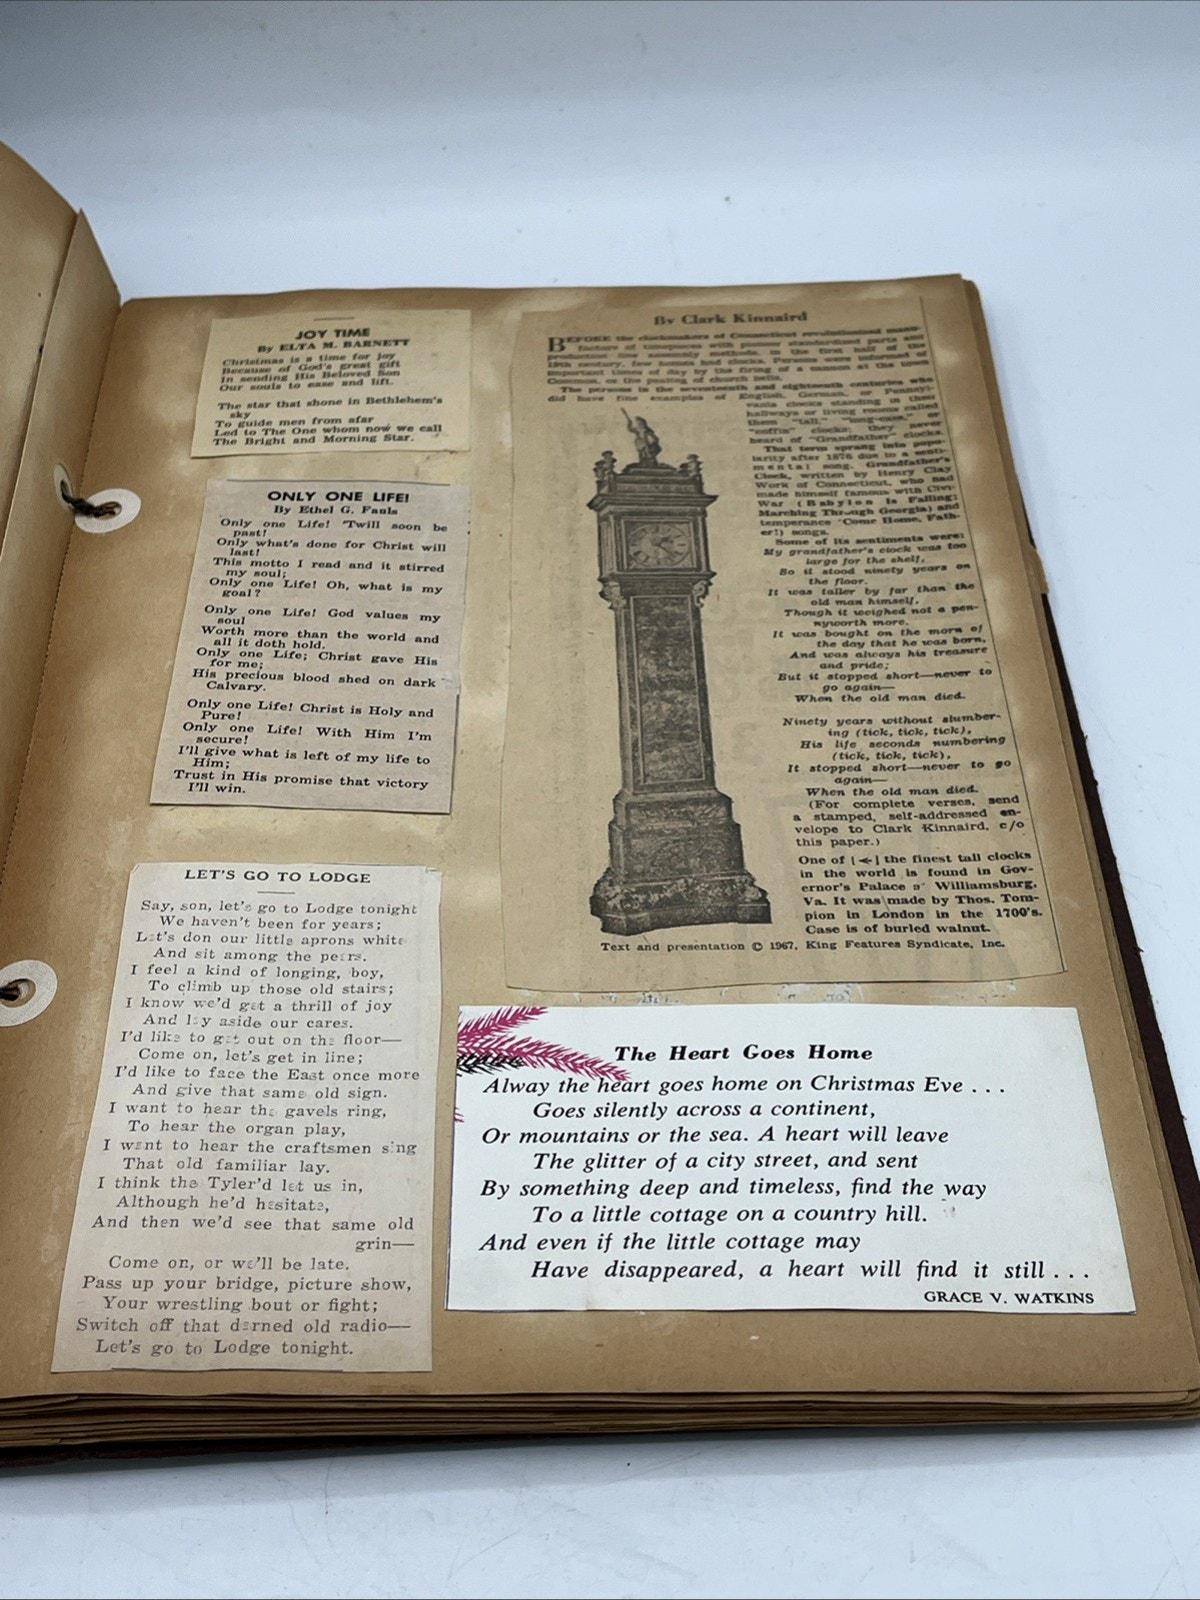 JOY TIME
By ELTA M. BARNETT
Christmas is a time for joy
Because of God's great gift
In sending His Beloved Son
Our souls to ease and lift.
The star that shone in Bethlehem's
sky
To guide men from afar
Led to The One whom now we call
The Bright and Morning Star.
ONLY ONE LIFE!
By Ethel G. Fauls
Only one Life! 'Twill soon be
past!
Only what's done for Christ will
last!
This motto I read and it stirred
my soul;
Only one Life! Oh, what is my
goal?
Only one Life! God values my
soul
Worth more than the world and
all it doth hold.
Only one Life; Christ gave His
for me;
His precious blood shed on dark
Calvary.
Only one Life! Christ is Holy and
Pure!
Only one Life! With Him I'm
secure!
I'll give what is left of my life to
Him;
Trust in His promise that victory
I'll win.
LET'S GO TO LODGE
Say, son, let's go to Lodge tonight
We haven't been for years;
Let's don our little aprons white
And sit among the peers.
I feel a kind of longing, boy,
To climb up those old stairs;
I know we'd get a thrill of joy
And lay aside our cares.
I'd like to get out on the floor—
Come on, let's get in line;
I'd like to face the East once more
And give that same old sign.
I want to hear the gavels ring,
To hear the organ play,
I want to hear the craftsmen sing
That old familiar lay.
I think the Tyler'd let us in,
Although he'd hesitate,
And then we'd see that same old
grin—
Come on, or we'll be late.
Pass up your bridge, picture show,
Your wrestling bout or fight;
Switch off that darned old radio—
Let's go to Lodge tonight.
By Clark Kinnaird
BEFORE the clockmakers of Connecticut revolutionized manu-
facture of timepieces with power standardized parts and
production line assembly methods, in the first half of the
19th century, few homes had clocks. Persons were informed of
important times of day by the firing of a cannon at the town
Common, or the pealing of church bells.
The persons in the seventeenth and eighteenth centuries who
did have fine examples of English, German, or Pennsyl-
vania clocks standing in their
hallways or living rooms called
them "tall," "long-case," or
"coffin" clocks; they never
heard of "Grandfather" clocks.
That term sprang into popu-
larity after 1876 due to a senti-
mental song, Grandfather's
Clock, written by Henry Clay
Work of Connecticut, who had
made himself famous with Civil
War (Babylon Is Falling;
Marching Through Georgia) and
temperance (Come Home, Fath-
er!) songs.
Some of its sentiments were:
My grandfather's clock was too
large for the shelf,
So it stood ninety years on
the floor.
It was taller by far than the
old man himself,
Though it weighed not a pen-
nyworth more.
It was bought on the morn of
the day that he was born,
And was always his treasure
and pride;
But it stopped short—never to
go again—
When the old man died.
Ninety years without slumber-
ing (tick, tick, tick),
His life seconds numbering
(tick, tick, tick),
It stopped short—never to go
again—
When the old man died.
(For complete verses, send
a stamped, self-addressed en-
velope to Clark Kinnaird, c/o
this paper.)
One of [←] the finest tall clocks
in the world is found in Gov-
ernor's Palace at Williamsburg,
Va. It was made by Thos. Tom-
pion in London in the 1700's.
Case is of burled walnut.
Text and presentation © 1967, King Features Syndicate, Inc.
The Heart Goes Home
Alway the heart goes home on Christmas Eve . . .
Goes silently across a continent,
Or mountains or the sea. A heart will leave
The glitter of a city street, and sent
By something deep and timeless, find the way
To a little cottage on a country hill.
And even if the little cottage may
Have disappeared, a heart will find it still . . .
GRACE V. WATKINS